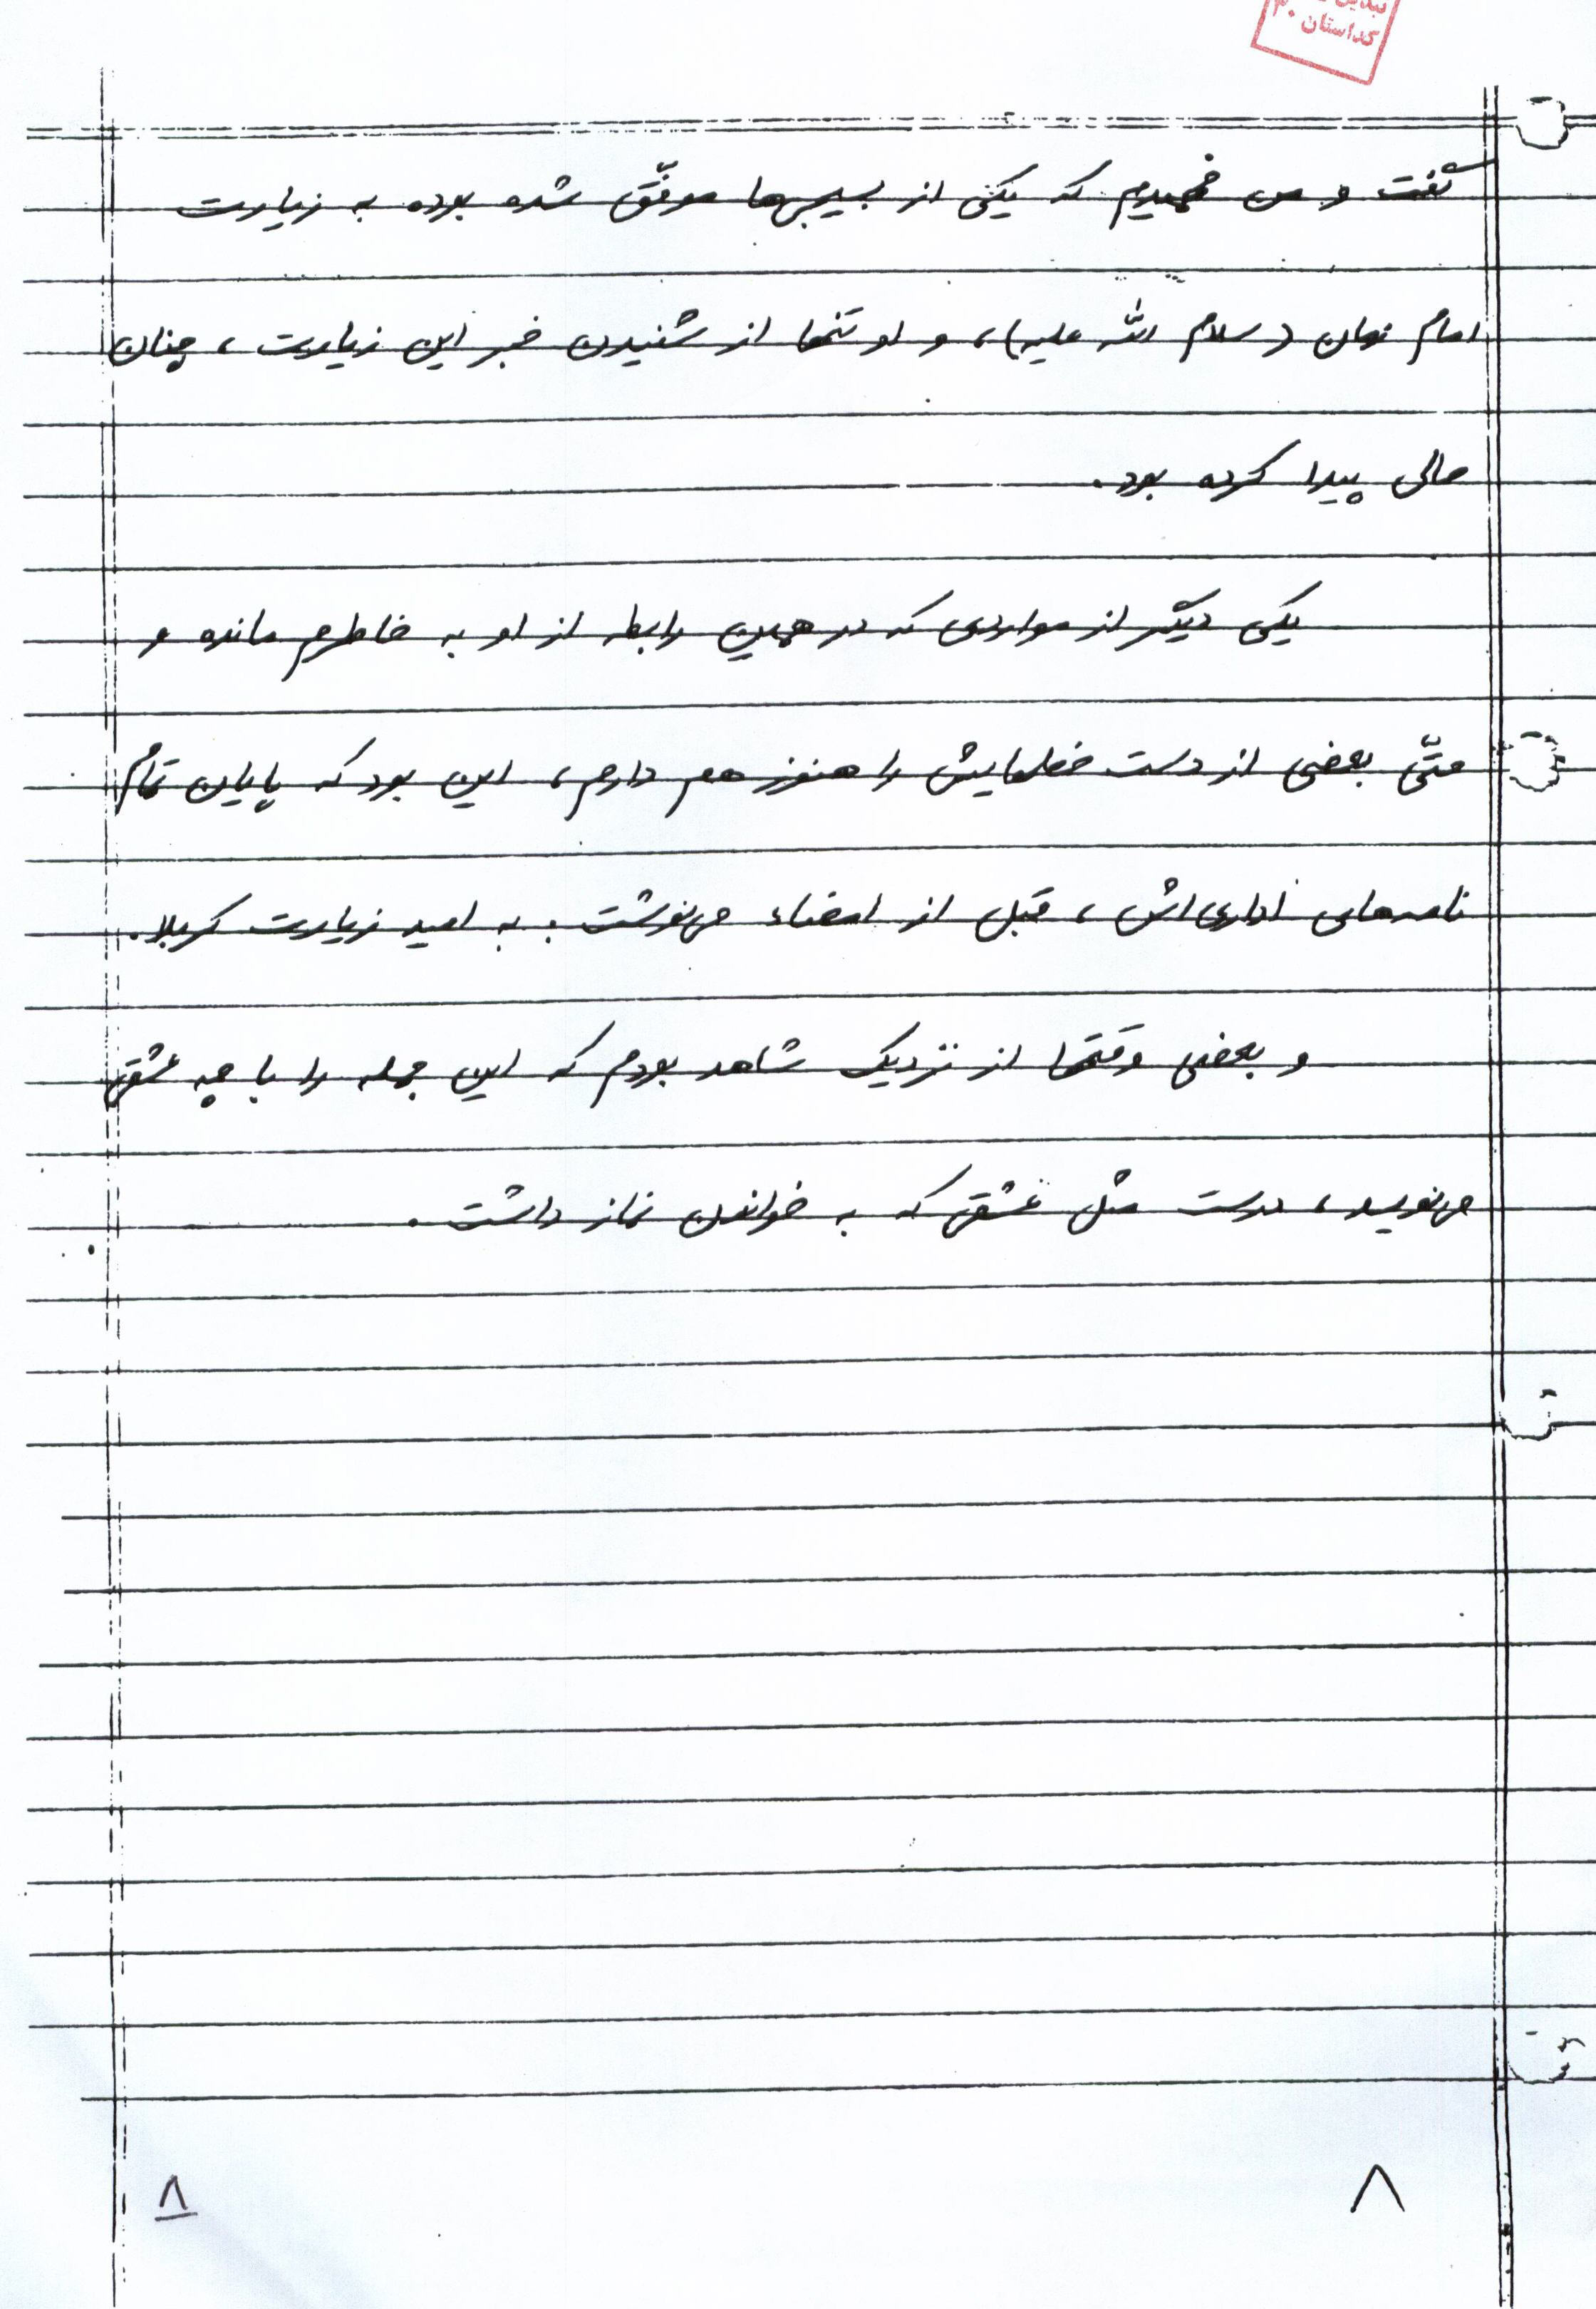 کداستان ۳۰
گفت و من فهمیدم که یکی از بسیجیها موفّق شده بوده به زیارت
امام زمان (سلام الله علیه)، و او تنها از شنیدن خبر این زیارت، چنان
حالی پیدا کرده بود.
یکی دیگر از مواردی که در همین رابطه از او به خاطرم مانده و
حتّی بعضی از دست خطهایش را هنوز هم دارم، این بود که پایان تمام
نامه‌های اداری‌اش، قبل از امضاء می‌نوشت: به امید زیارت کربلا.
و بعضی وقتها از نزدیک شاهد بودم که این جمله را با چه عشقی
می‌نویسد، درست مثل عشقی که به خواندن نماز داشت.
۸
۸